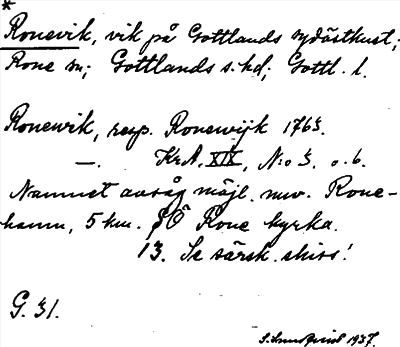 *
Ronevik, vik på Gottlands sydöstkust;
Rone sn; Gottlands s. hd; Gottl. l.
Ronewik, resp. Ronewijk 1763.
—. KrA. XIX, N:o 3, o. 6.
Namnet avsåg möjl. nuv. Rone-
hamn, 5 km. SÖ Rone kyrka.
13. Se särsk. skiss!
G. 31.
1937.